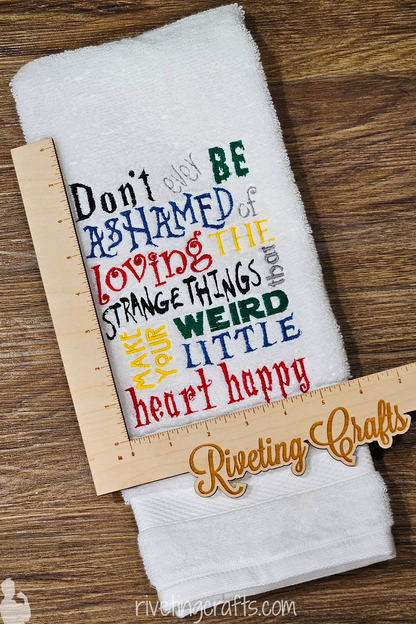 Don't ever BE
ASHAMED of
loving THE
STRANGE THINGS that
MAKE YOUR WEIRD
LITTLE
heart happy
Riveting Crafts
rivetingcrafts.com